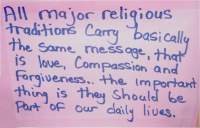 All major religious
traditions Carry basically
the same message, that
is love, Compassion and
Forgiveness.. the important
thing is they should be
Part of our daily lives.